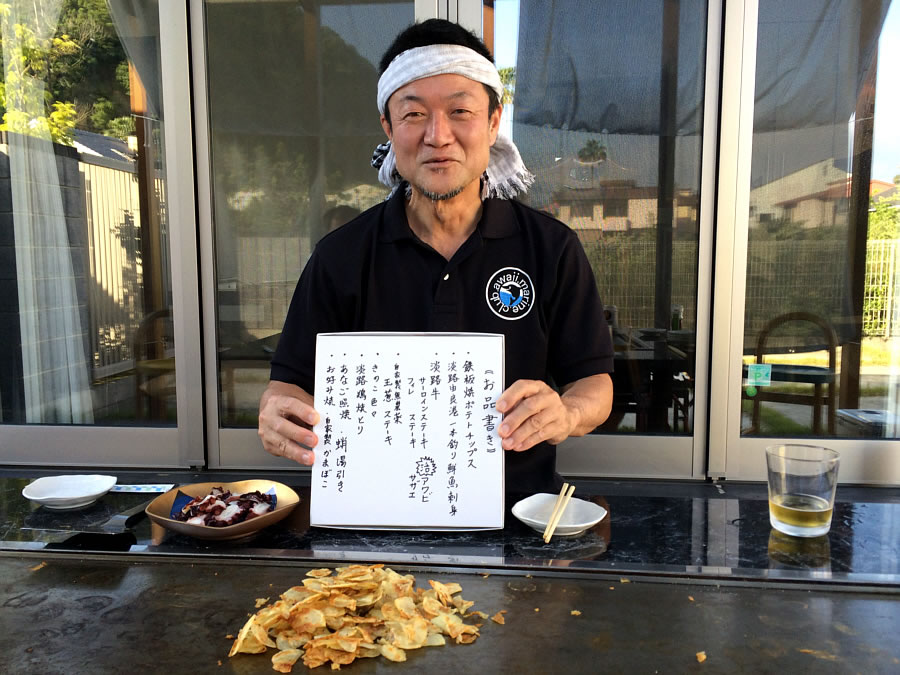 『お品書き』
・鉄板焼ポテトチップス
・淡路由良港一本釣り鮮魚刺身
・淡路牛
サーロインステーキ
フィレ ステーキ
活
アワビ
サザエ
・自家製無農薬
玉葱 ステーキ
・きのこ色々
・淡路鶏焼とり
・あなご照焼 ・蛸湯引き
・お好み焼 ・自家製かまぼこ
awaji marine club